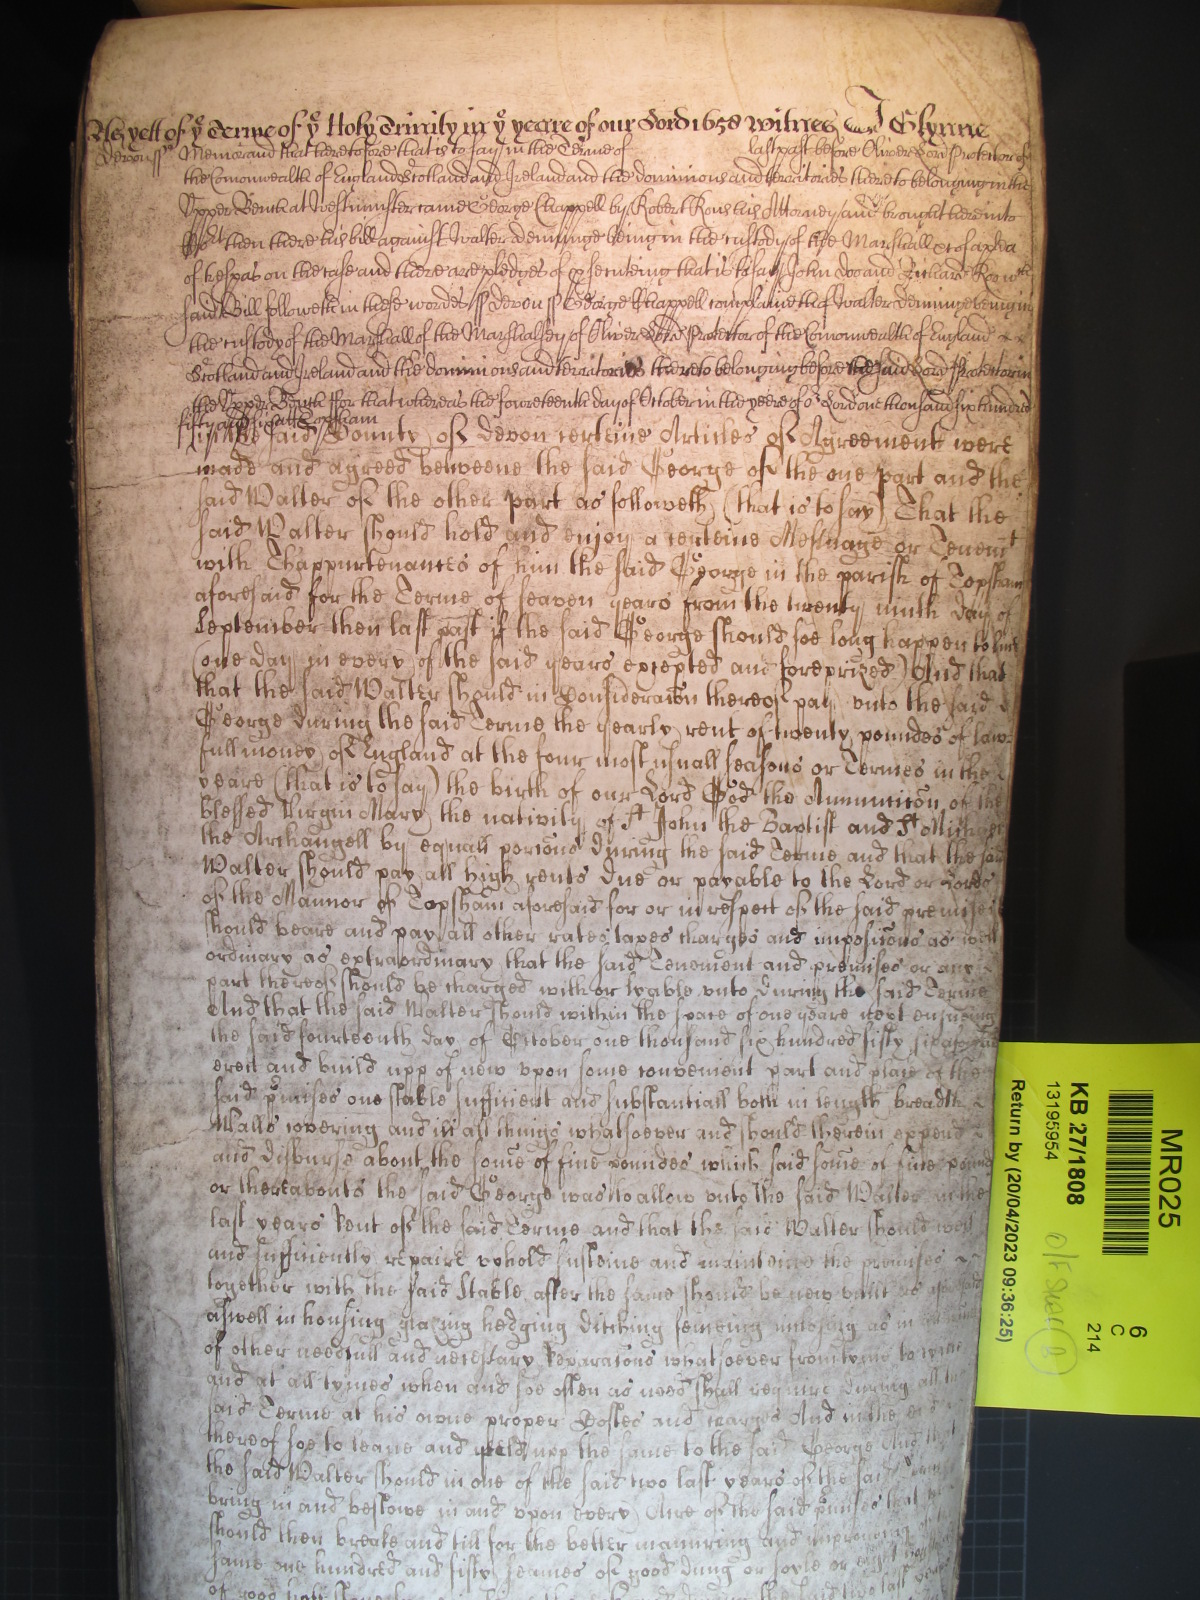 As yett of ye Terme of ye Holy Trinity in ye yeare of our Lord 1658 Witnes J Glynne
Devon ss Memorand that heretofore that is to say in the Terme of last past before Oliver Lord Protector of
the Comonwealth of England Scotland and Ireland and the dominions and territories thereto belonging in the
Upper Bench at Westminster came George Chappell by Robert Rous his Attorney and brought here into
then there his bill against Walter Deminge being in the custody of the Marshall &c of a plea
of trespas on the case and there are pledges of prosecuteing that is to say John Doo and Richard Roo wch
said Bill followeth in these wordes ss Devon ss George Chappell complaineth of Walter Deminge being in
the custody of the Marshall of the Marshalsey of Oliver Lord Protector of the Comonwealth of England
Scotland and Ireland and the dominions and territories thereto belonging before the said Lord Protector in
the Upper Bench ffor that whereas the fowreteenth day of October in the yeere of or Lord one thousand six hundred
fifty and six att Topsham
in the said County of Devon certeine Articles of Agreement were
made and agreed betweene the said George of the one part and the
said Walter of the other part as followeth (that is to say) That the
said Walter should hold and enjoy a certeine Messuage or Tenemt
with Thappurtenances of him the said George in the parish of Topsham
aforesaid for the Terme of seaven yeares from the twenty ninth day of
September then last past if the said George should soe long happen to live
(one day in every of the said yeares excepted and foreprized) And that
that the said Walter should in Consideracon thereof pay unto the said
George during the said Terme the yearly rent of twenty poundes of law=
full money of England at the four most usuall seasons or Termes in the
yeare (that is to say) the birth of our Lord God the Annuncicon of the
Blessed Virgin Mary the nativity of St John the Baptist and St Michael
the Archangell by equall porcons during the said Terme and that the said
Walter should pay all high rents due or payable to the Lord or Lords
of the Mannor of Topsham aforesaid for or in respect of the said premises
should beare and pay all other rates taxes charges and imposicons as well
ordinary as extraordinary that the said Tenement and premises or any
part thereof should be charged with or lyable unto during the said Terme
And that the said Walter should within the space of one yeare next ensueing
the said fourteenth day of October one thousand six hundred fifty six aforesaid
erect and build upp of new upon some convenient part and place of the
said pmises one stable sufficient and substantiall both in length breadth
Walls covering and in all things whatsoever and should therein expend
and disburse about the some of five poundes which said some of five pounds
or thereabouts the said George was to allow unto the said Walter in the
last yeares Rent of the said Terme and that the said Walter should well
and sufficiently repaire uphold susteine and mainteine the premises
together with the said Stable after the same should be new built as aforesaid
aswell in housing glazing hedging ditching fenceing as in
of other needfull and necessary Reparacons whatsoever from tyme to tyme
and at all tymes when and soe often as need shall require during all the
said Terme at his owne proper Costes and charges And in the end
thereof soe to leave and yeild upp the same to the said George And that
the said Walter should in one of the said two last yeares of the said Terme
bring in and bestowe in and upon every Acre of the said pmises that he
should then breake and till for the better manuring and improveing of the
same one hundred and fifty seames of good dung or soyle or eight
of good
MR025
KB 27/1808
13195954
6
C
214
Return by (20/04/2023 09:36:25)